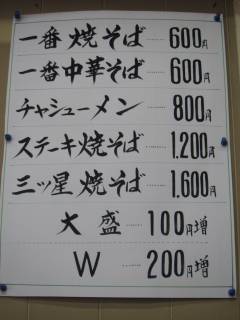 一番焼そば 600円
一番中華そば 600円
チャシューメン 800円
ステーキ焼そば 1.200円
三ッ星焼そば 1.600円
大盛 100円増
W 200円増